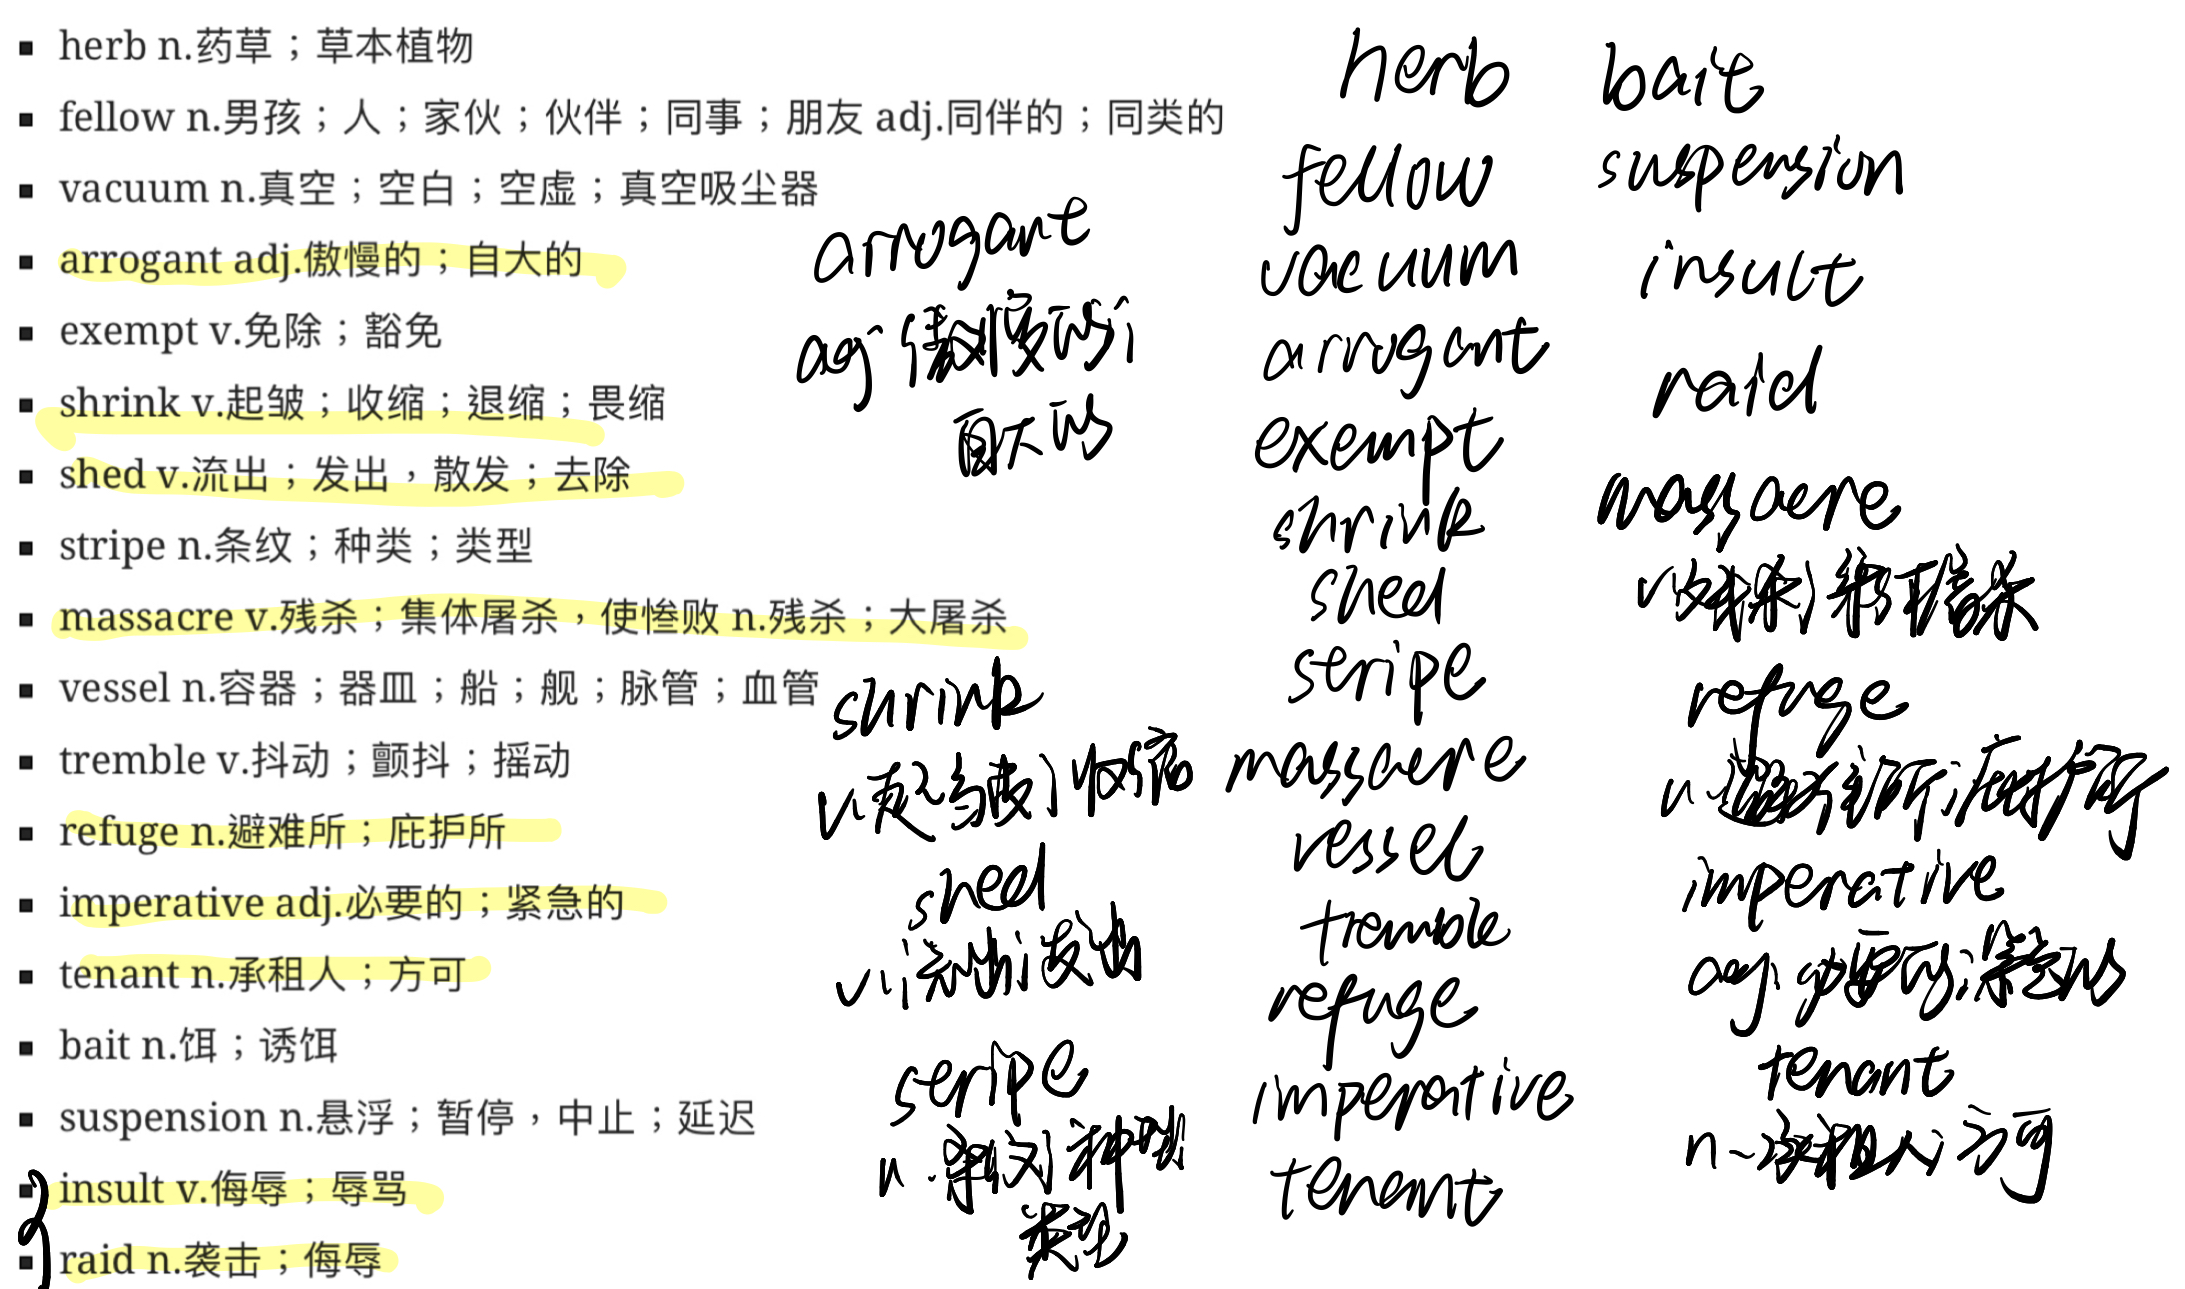 herb n.药草；草本植物
fellow n.男孩；人；家伙；伙伴；同事；朋友 adj.同伴的；同类的
vacuum n.真空；空白；空虚；真空吸尘器
arrogant adj.傲慢的；自大的
exempt v.免除；豁免
shrink v.起皱；收缩；退缩；畏缩
shed v.流出；发出，散发；去除
stripe n.条纹；种类；类型
massacre v.残杀；集体屠杀，使惨败 n.残杀；大屠杀
vessel n.容器；器皿；船；舰；脉管；血管
tremble v.抖动；颤抖；摇动
refuge n.避难所；庇护所
imperative adj.必要的；紧急的
tenant n.承租人；方可
bait n.饵；诱饵
suspension n.悬浮；暂停，中止；延迟
insult v.侮辱；辱骂
raid n.袭击；侮辱
arrogant
adj 傲慢的；
自大的
shrink
v.起皱；收缩
shed
v.流出；发出
stripe
n.条纹；种类
类型
herb
fellow
vacuum
arrogant
exempt
shrink
shed
stripe
massacre
vessel
tremble
refuge
imperative
tenant
bait
suspension
insult
raid
massacre
v.残杀；
refuge
n.避难所；庇护所
imperative
adj.必要的；紧急的
tenant
n.承租人；方可